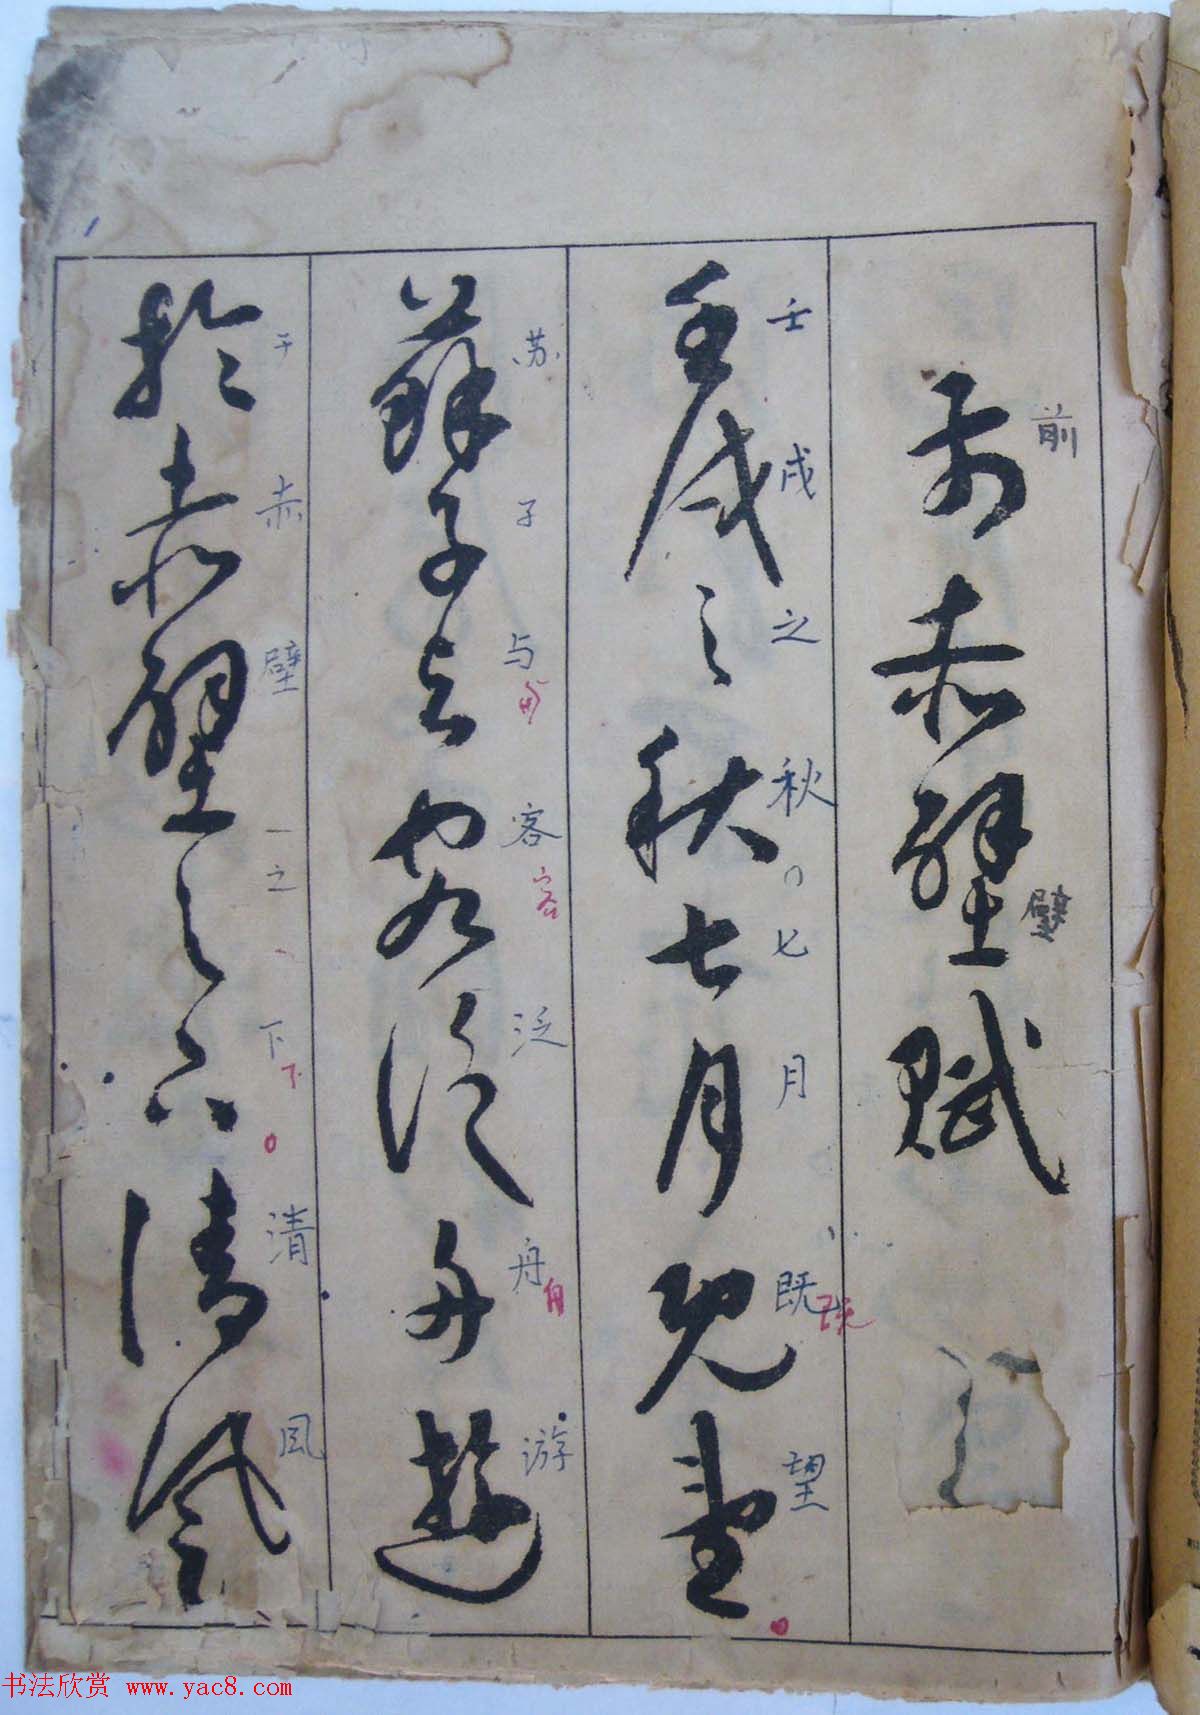 前赤壁賦
壬戌之秋七月既望
蘇子与客泛舟遊
於赤壁之下清風
前
壁
壬戌之秋七月既望
既
苏子与客泛舟游
与
客
舟
于赤壁之下清風
下
书法欣赏 www.yac8.com